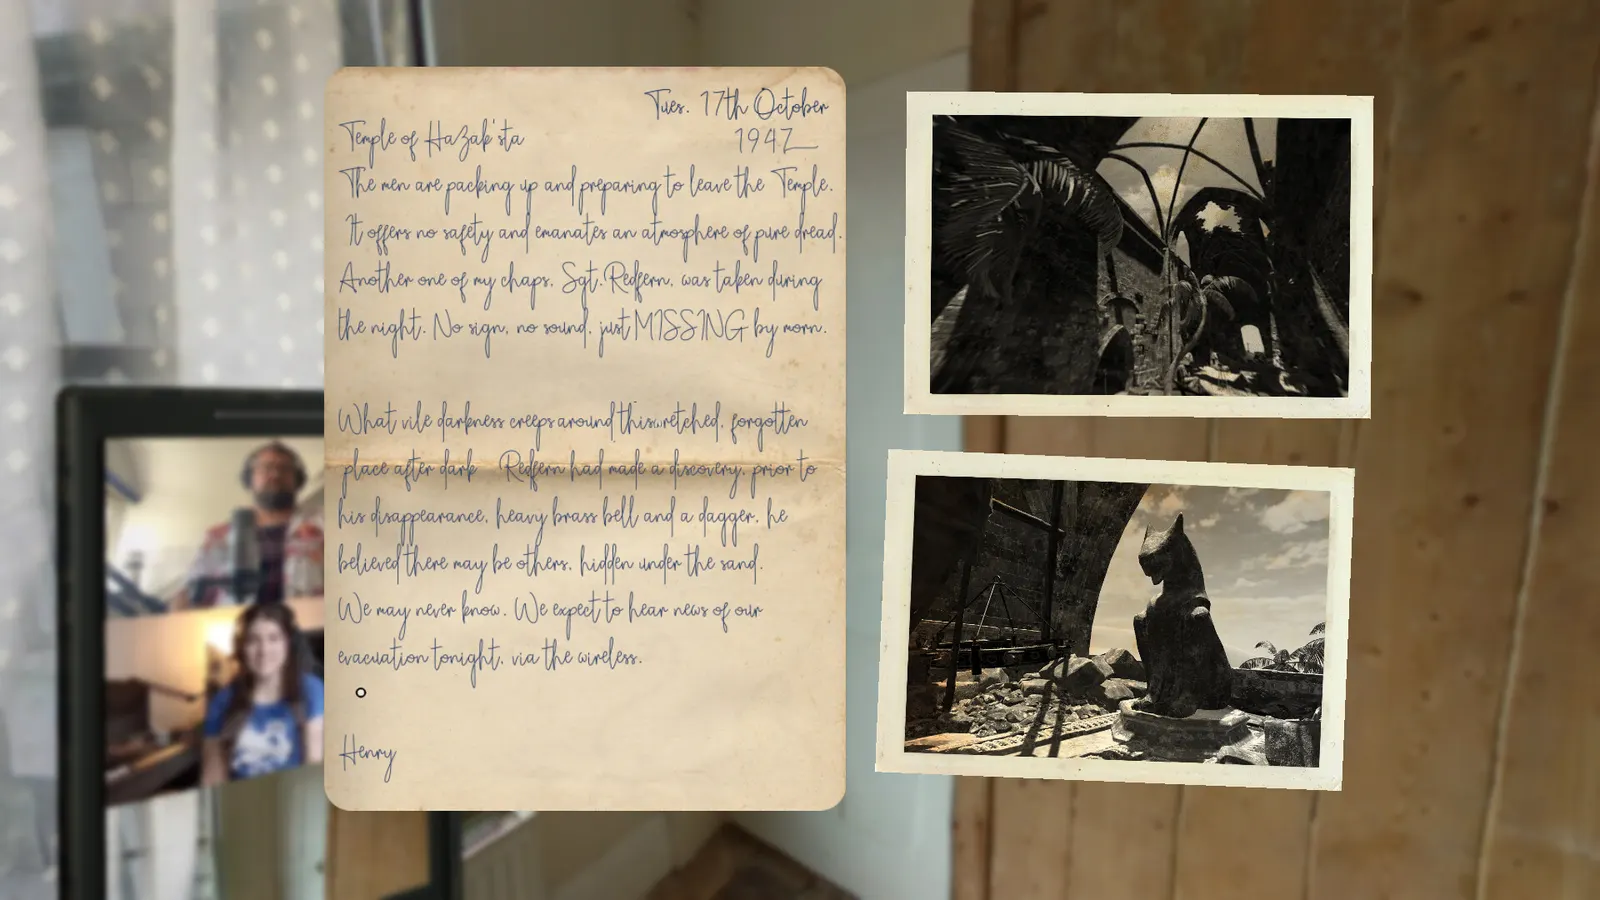 Tues. 17th October
Temple of HaZak'sta
1947
The men are packing up and preparing to leave the Temple.
It offers no safety and emanates an atmosphere of pure dread.
Another one of my chaps, Sgt. Redfern, was taken during
the night. No sign, no sound, just MISSING by morn.
What vile darkness creeps around thiswretched, forgotten
place after dark Redfern had made a discovery, prior to
his disappearance, heavy brass bell and a dagger, he
believed there may be others, hidden under the sand.
We may never know. We expect to hear news of our
evacuation tonight, via the wireless.
Henry